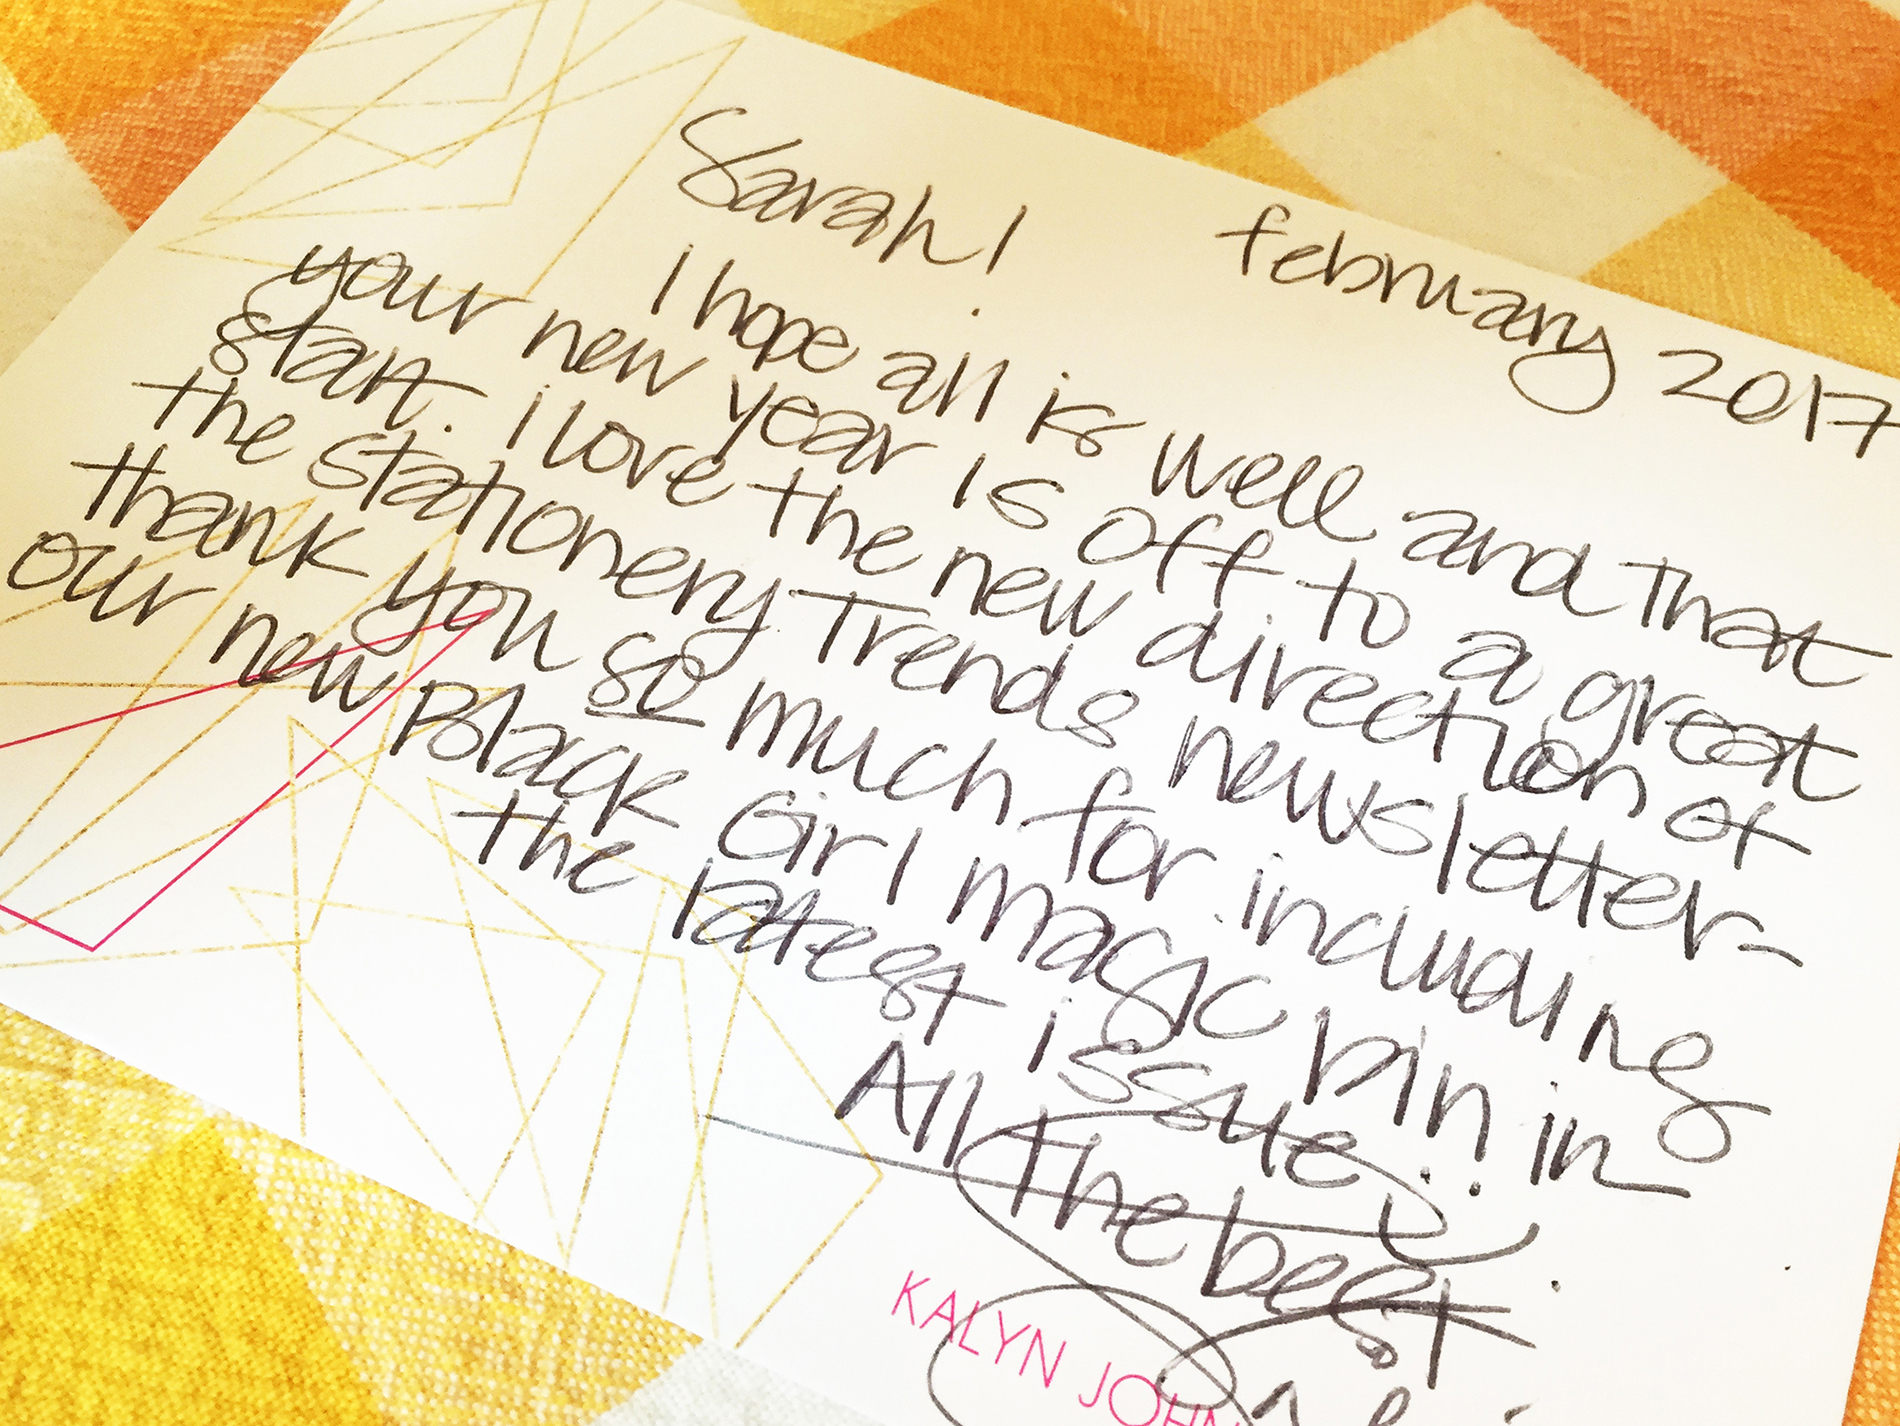 Sarah! february 2017
I hope all is well and that
your new year is off to a great
start. I love the new direction of
the stationery Trends newsletter-
thank you so much for including
our new Black Girl magic pin in
the latest issue!
All the best
KALYN JOHN